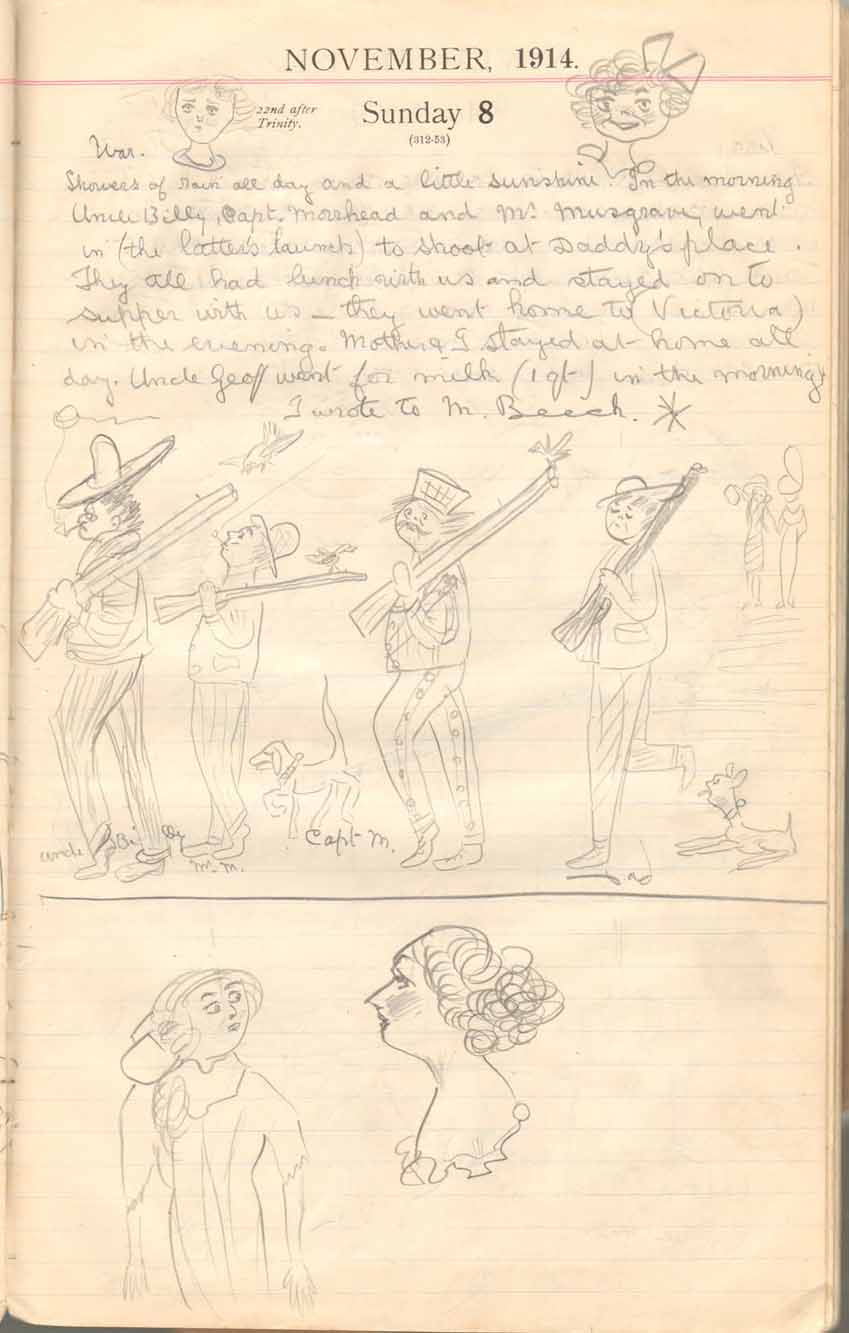 NOVEMBER, 1914.
22nd after
Trinity.
Sunday 8
(312-53)
War.
Showers of rain all day and a little sunshine. In the morning
Uncle Billy, Capt. Morshead and Mr Musgrave, went
in (the latter's launch) to shoot at Daddy's place.
They all had lunch with us and stayed on to
supper with us — they went home to (Victoria)
in the evening. Mother & I stayed at home all
day. Uncle Geoff went for milk (1 qt) in the morning
I wrote to M. Beech.
Uncle Billy
M. M.
Capt M.
Dad